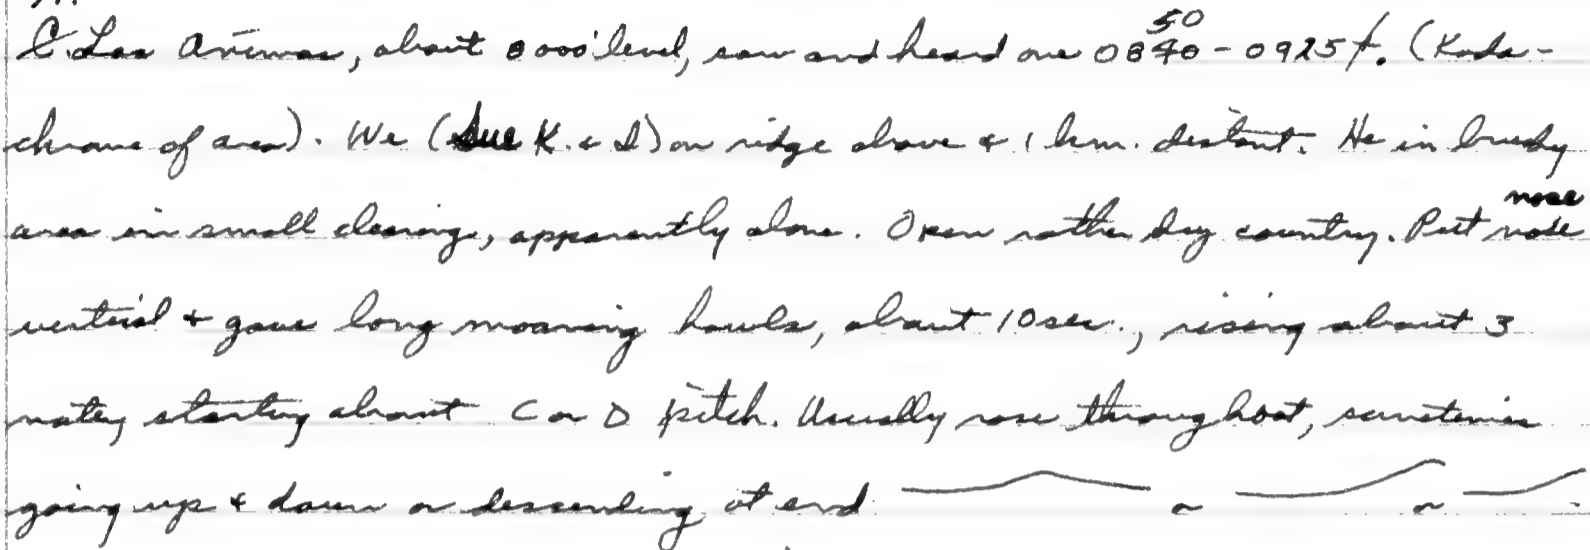 C. Las Animas, about 8000' level, saw and heard one 0840 50 - 0925 +. (Koda-
chrome of area). We (Sue K. & I) on ridge above & 1 km. distant. He in brushy
area in small clearing, apparently alone. Open rather dry country. Put nose nose
vertical + gave long moaning howls, about 10 sec., rising about 3
notes, starting about C or D pitch. Usually rose throughout, sometimes
going up & down or descending at end or or